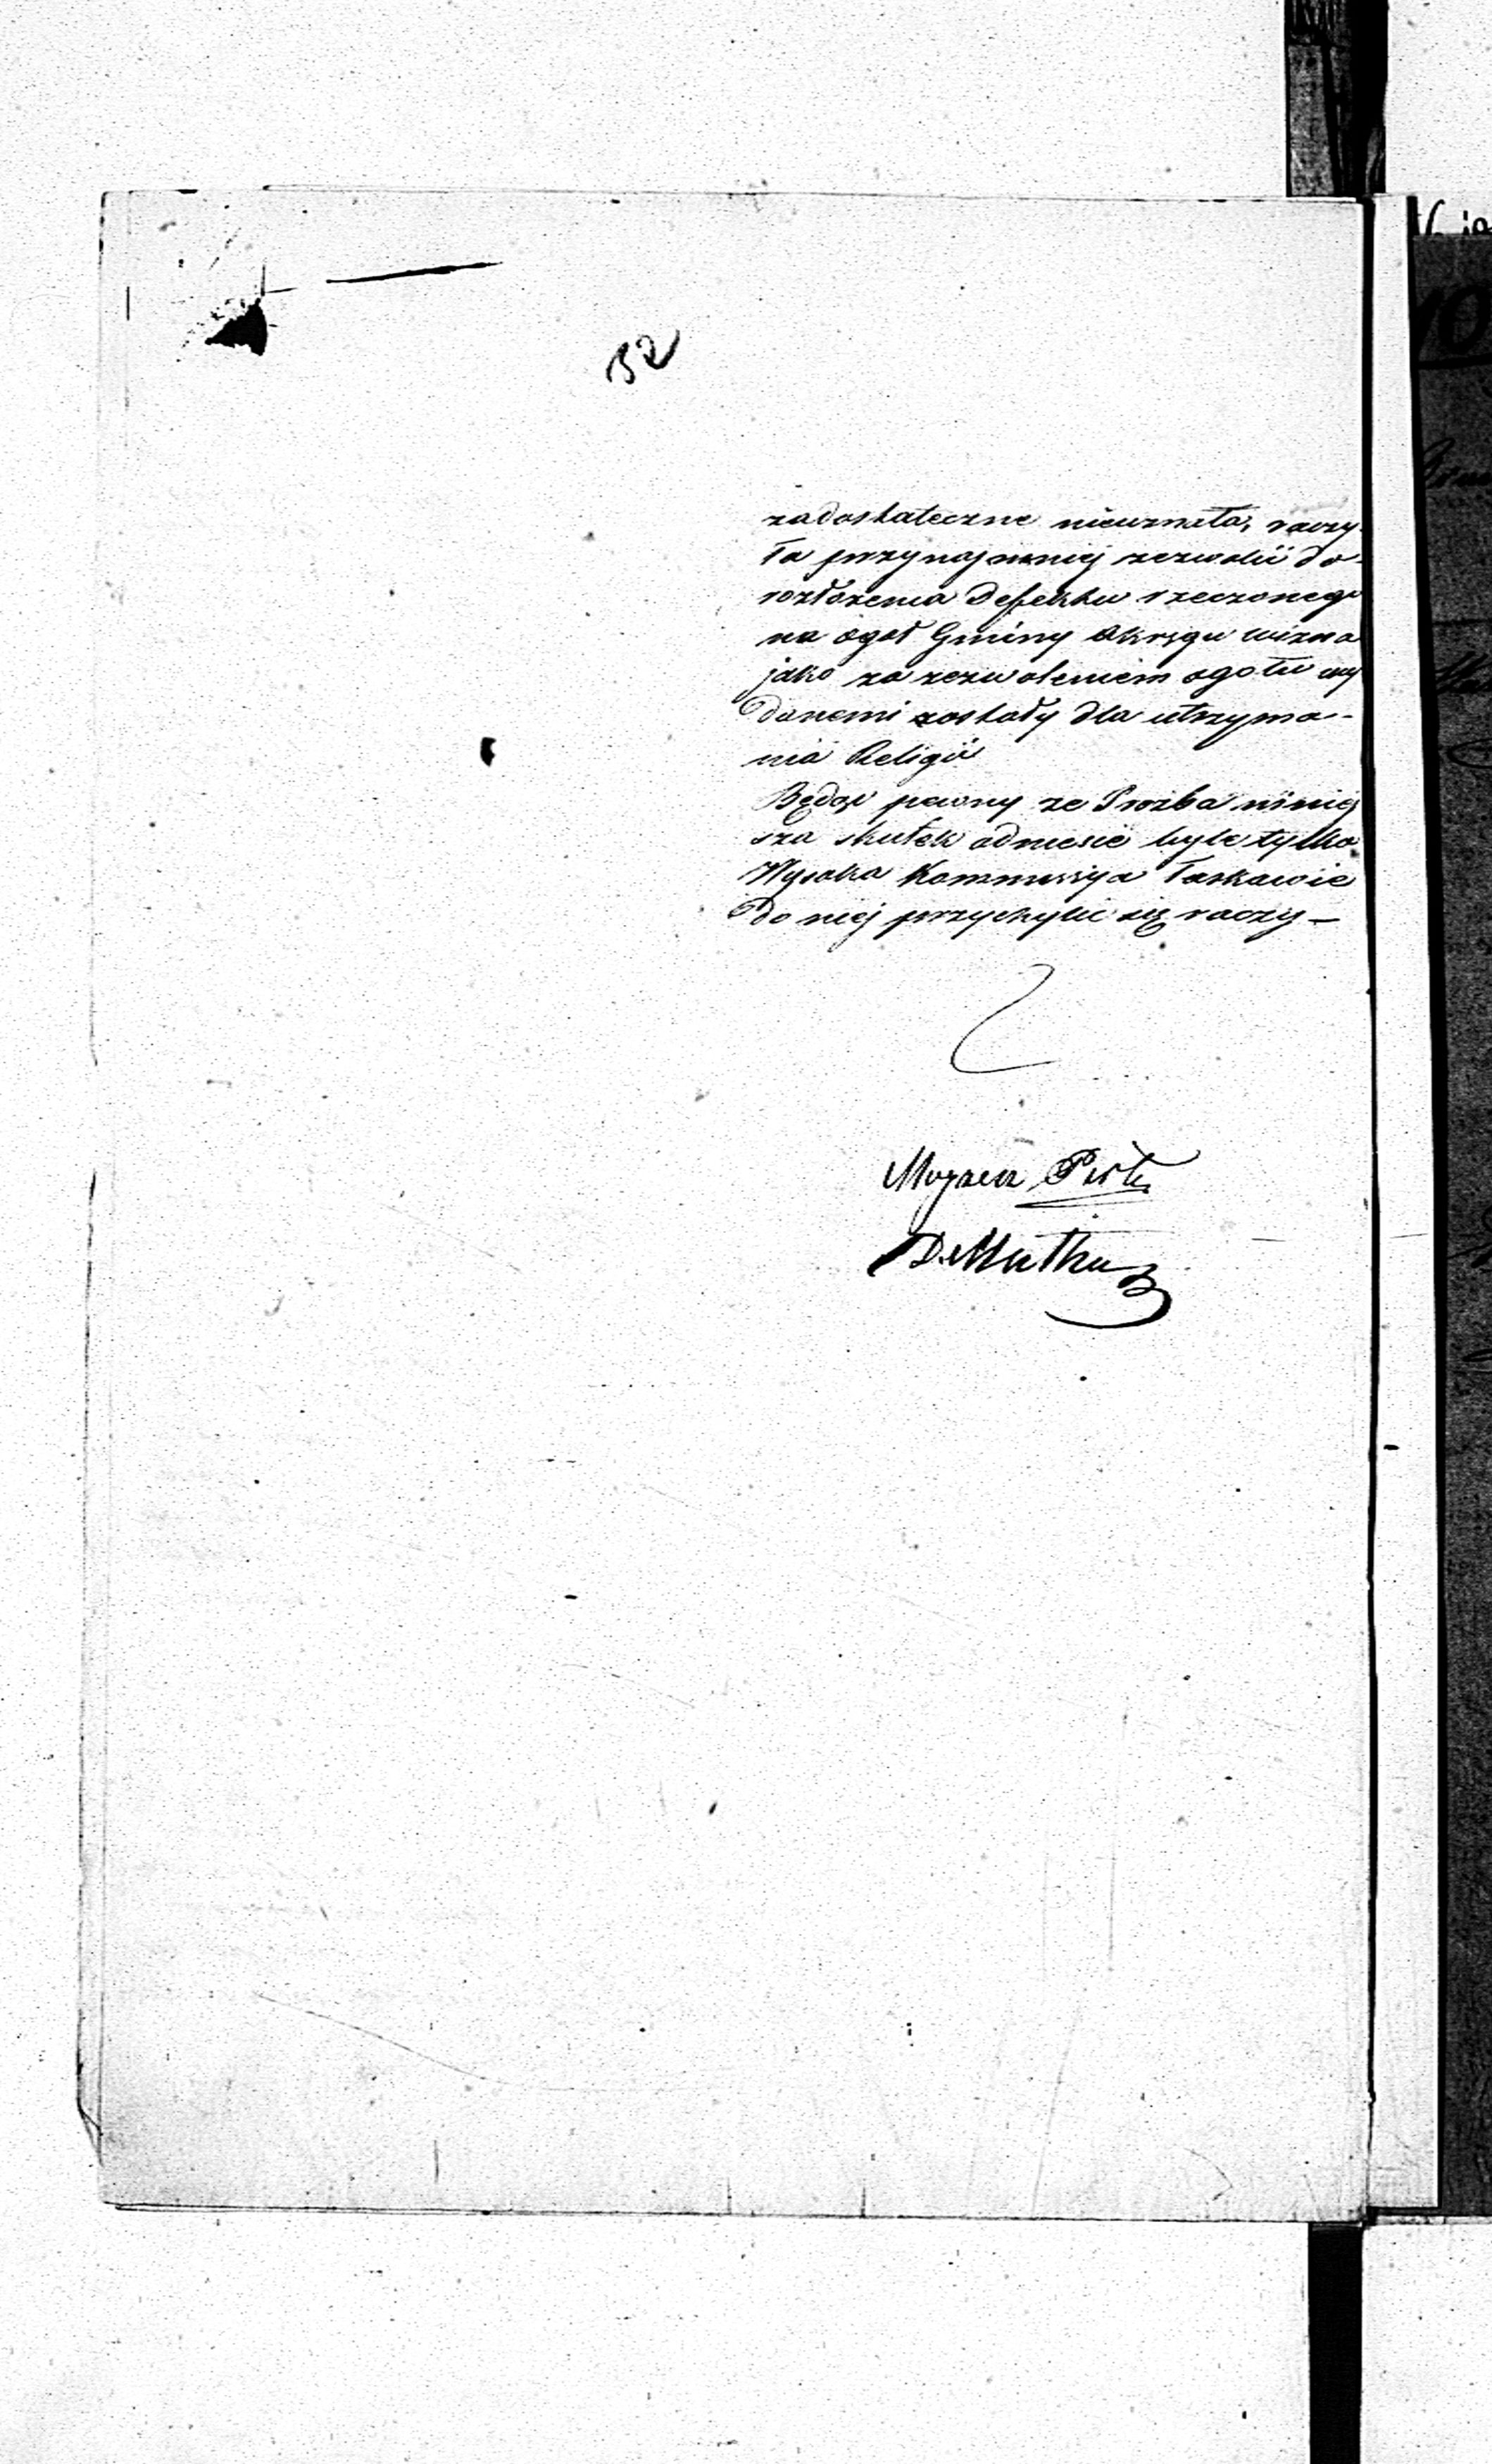 52
zadostateczne nieuznała, raczy
ła przynajmniej zezwolić do
rozłożenia defektu rzeczonego
na ogół Gminy Okręgu Wizna
jako za zezwoleniem ogołu wy
danemi zostały dla utrzyma-
nia Religii
Będąc pewny ze Prozba niniej
sza skutek odniesie byle tylko
Wysoka Kommissya łaskawie
do niej przychylić się raczy —